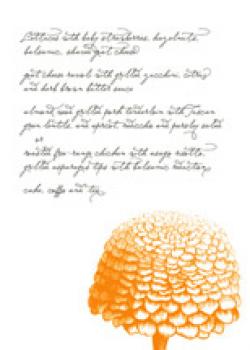 Lettuces with baby strawberries, hazelnuts,
balsamic, shaved goat cheese
goat cheese ravioli with grilled zucchini, citrus
and herb brown butter sauce
almond wood grilled pork tenderloin with Tuscan
green lentils and apricot and parsley salad
or
roasted free-range chicken with asiago risotto,
grilled asparagus tips with balsamic reduction
cake, coffee and tea